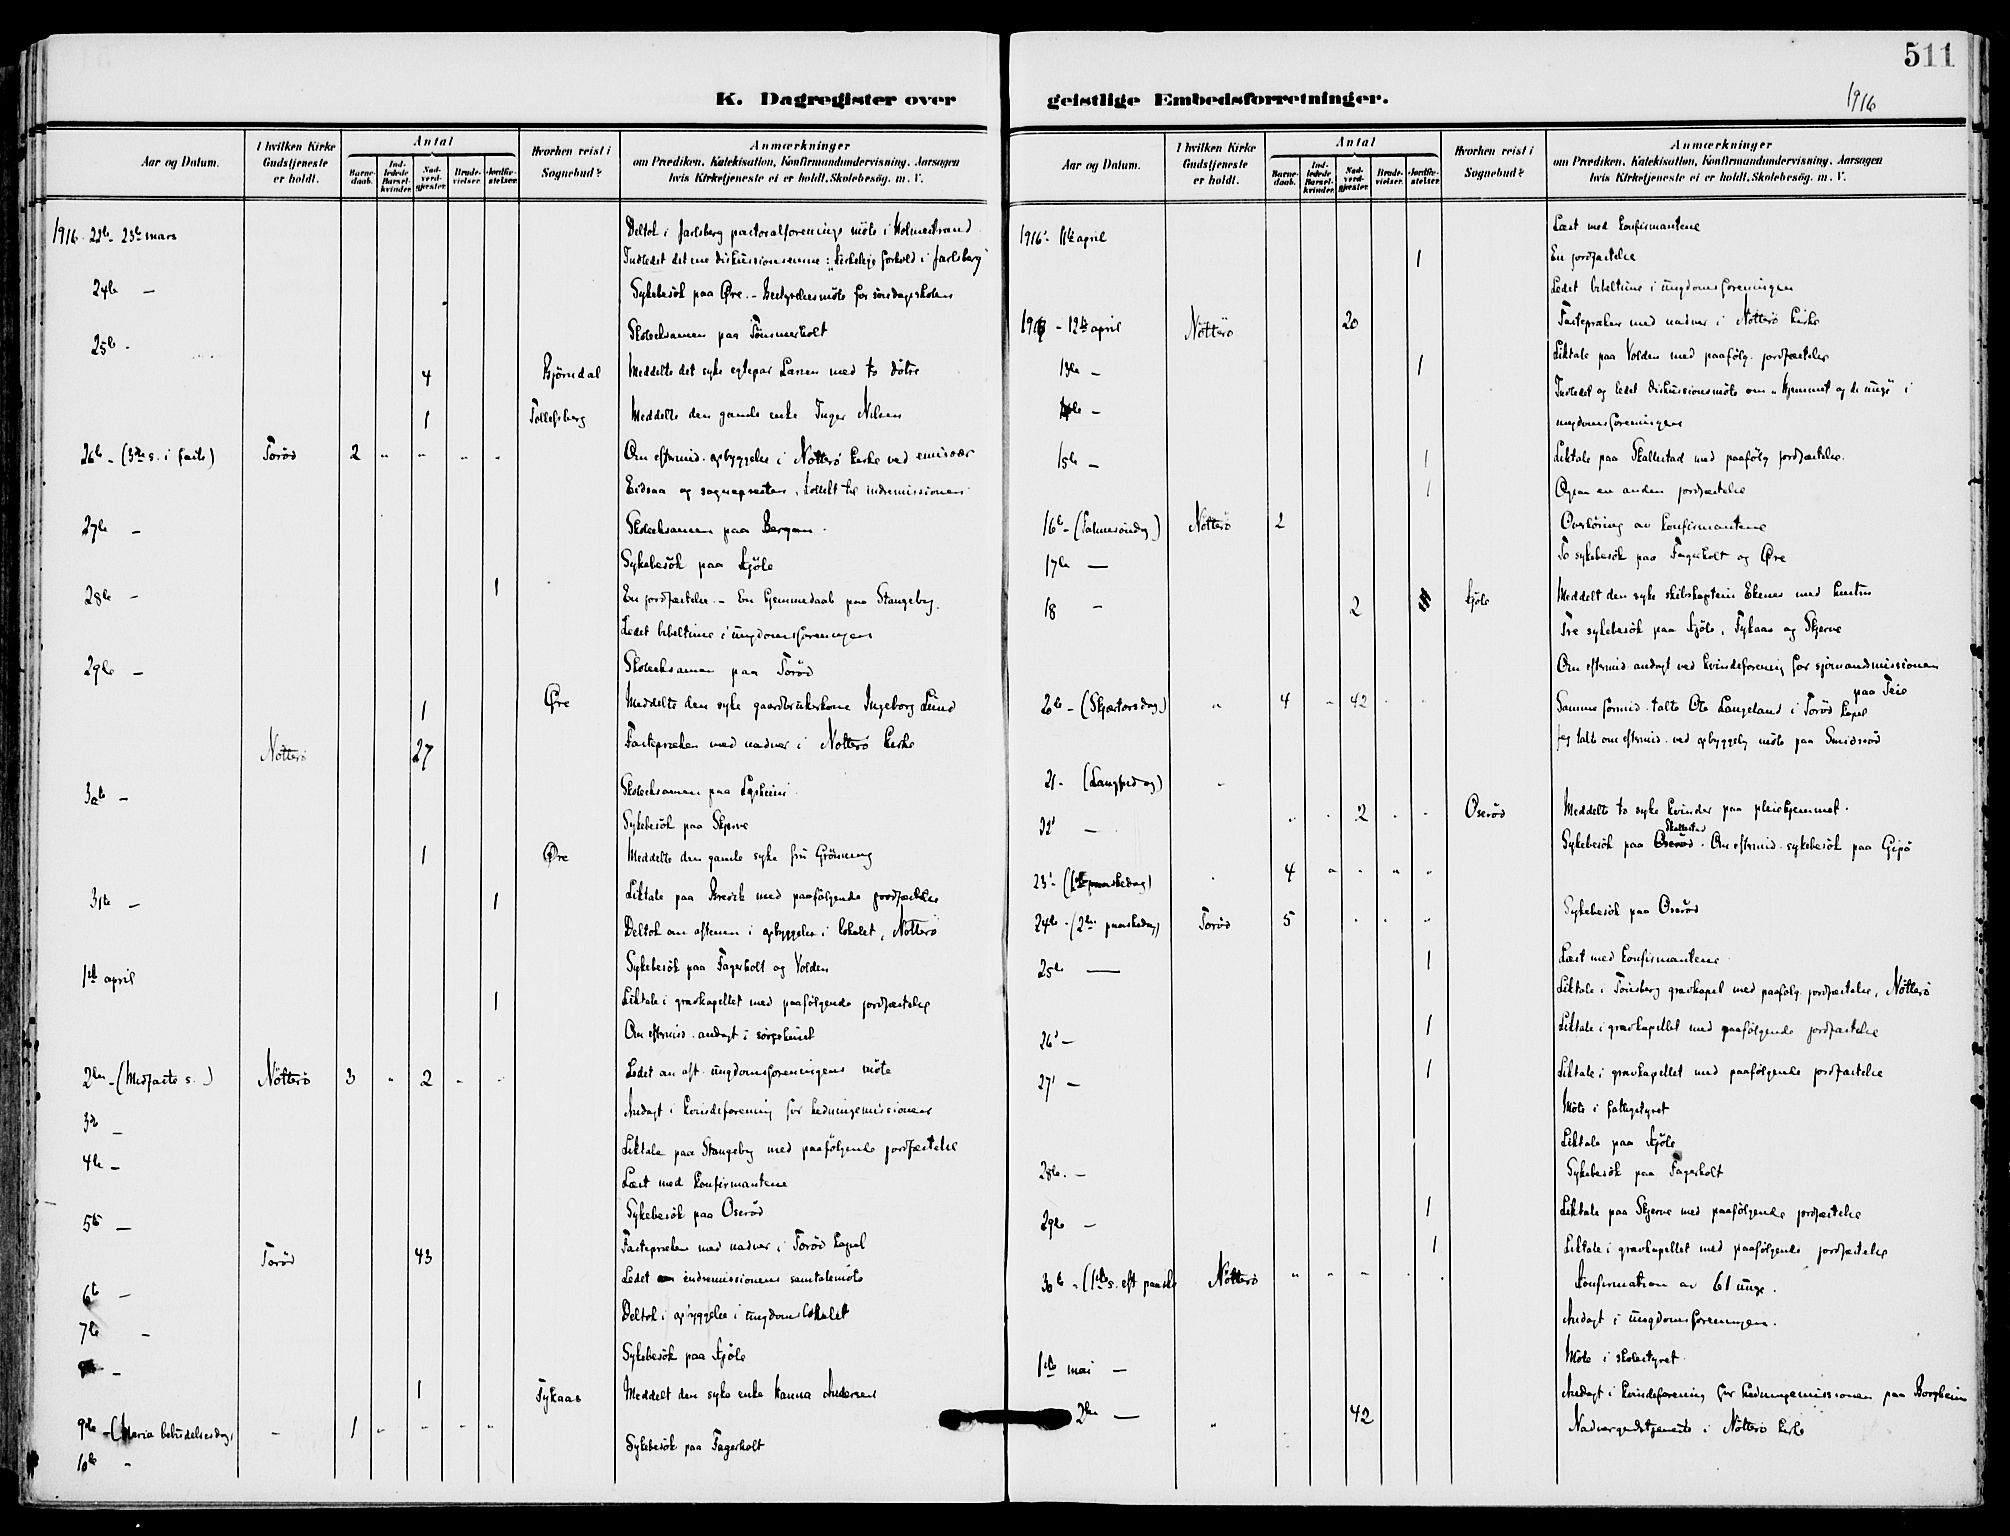 511
1916
K. Dagregister over
Aar og Datum.
I hvilken Kirke Gudstjeneste er holdt.
Antal
Barne-daab.
Ind-ledede Barsel-kvinder.
Nad-verd-gjester.
Brude-vielser.
Jordfæ-stelser.
Hvorhen reist i Sognebud?
Anmærkninger
om Prædiken, Katekisation, Konfirmandundervisning, Aarsagen
hvis Kirketjeneste ei er holdt, Skolebesøg. m. V.
1916. 22de - 23de mars Deltok i Jarlsberg pastoralforenings möte i Holmestrand
Indledet det ene diskussionsemne: "Kirkelige forhold i Jarlsberg"
24de — Sykebesök paa Øre. - Bestyrelsesmöte for söndagsskolen
25de - Skoleeksamen paa Tönsmerholt
4 Bjørndal Meddelte det syke egtepar Larsen med to dötre
1 Tollefsberg Meddelte den gamle enke Inger Nilsen
26de - (3die s. i faste) Torød 2 " " " " Om eftermid. opbyggelse i Nötterö kirke ved emissær
Eidsaa og sognepresten. Kollekt til indremissionen
27de — Skoleeksamen paa Bergan.
Sykebesök paa Kjöle
28de - 1 En jordfæstelse. - En hjemmedaab paa Stangeby.
Ledet bibeltime i ungdomsforeningen
29de — Skoleeksamen paa Torød
1 Øre Meddelte den syke gaardbrukerkone Ingeborg Lund
Nötterö 27 Fasteprœken med nadver i Nötterö kirke
30te — Skoleeksamen paa Lysheim
Sykebesök paa Skjerve
1 Øre Meddelte den gamle syke fru Grönning
31te — 1 Liktale paa Brevik med paafölgende jordfæstelse
Deltok om aftenen i opbyggelse i lokalet, Nötterö
1ste april Sykebesök paa Fagerholt og Volden
1 Liktale i gravkapellet med paafölgende jordfæstelse
Om eftermid. andagt i sorgehuset
2den - (Midfaste s.) Nötterö 3 " 2 " " Ledet om aft. ungdomsforeningens möte
3die — Andagt i kvindeforening for hedningemissionen
4de — Liktale paa Stangeby med paafölgende jordfæstelse
Læst med konfirmantene
5te — Sykebesök paa Oserød
Torød 43 Fasteprœken med nadver i Torød kapel
6te — Ledet indremissionens samtalemöte
7de - Deltok i opbyggelse i ungdomslokalet
- Sykebesök paa Kjöle
1 Fykaas Meddelt den syke enke Hanna Andersen
9de - (Maria bebudelsesdag) - 1 " " " "
10de - Sykebesök paa Fagerholt
geistlige Embedsforretninger.
Aar og Datum.
I hvilken Kirke Gudstjeneste er holdt.
Antal
Barne-daab.
Ind-ledede Barsel-kvinder.
Nad-verd-gjester.
Brude-vielser.
Jordfæ-stelser.
Hvorhen reist i Sognebud?
Anmærkninger
om Prædiken, Katekisation, Konfirmandundervisning, Aarsagen
hvis Kirketjeneste ei er holdt, Skolebesøg. m. V.
1916 - 11te april Læst med konfirmantene
1 En jordfæstelse
Ledet bibeltime i ungdomsforeningen
1916 - 12te april Nötterö 20 Fasteprœken med nadver i Nötterö kirke
13de — 1 Liktale paa Volden med paafölg. jordfæstelse
14de — Indledet og ledet diskussionsmöte om "Hjemmet og de unge" i
ungdomsforeningen
15de — 1 Liktale paa Skallestad med paafölg jordfæstelse.
1 Ogsaa en anden jordfæstelse
16de - (Palmesöndag) Nötterö 2 Overhöring av konfirmantene
17de — To sykebesök paa Fagerholt og Øre
18 - 2 Kjöle Meddelt den syke skibskaptein Ekenes med hustru
Tre sykebesök paa Kjöle, Fykaas og Skjerve
Om eftermid andagt ved kvindeforening for sjömandsmissionen
paa Teie
20de - (Skjærtorsdag) " 4 " 42 " " Samme formid. talte Ole Langeland i Torød kapel
Jeg talte om eftermid. ved opbyggelig möte paa Smidsröd
21 - (Langfredag) "
22' — " " 2 " " Oserød Meddelte to syke kvinder paa pleiehjemmet.
Sykebesök paa Skallestad. Om eftermid. sykebesök paa Gipö
23' - (1ste paaskedag) " 4 " " " "
24de - (2den paaskedag) Torød 5 " " " Sykebesök paa Oserød
25de — 1 Læst med konfirmantene
Liktale i Tönsberg gravkapel med paafölg. jordfæstelse, Nötterö
26' — 1 Liktale i gravkapellet med paafölgende jordfæstelse
27' — 1 Liktale i gravkapellet med paafölgende jordfæstelse
Möte i fattigstyret
Liktale paa Kjöle
28de. — Sykebesök paa Fagerholt
29de — 1 Liktale paa Skjerve med paafölgende jordfæstelse
1 Liktale i gravkapellet med paafölgende jordfæstelse
30te - (1ste s. eft paaske Nötterö " " " " " Konfirmation av 61 unge.
Andagt i ungdomsforeningen.
1ste mai — Möte i skolestyret.
Andagt i kvindeforening for hedningemissionen paa Borgheim
2den — " 42 Nadvergudstjeneste i Nötterö kirke